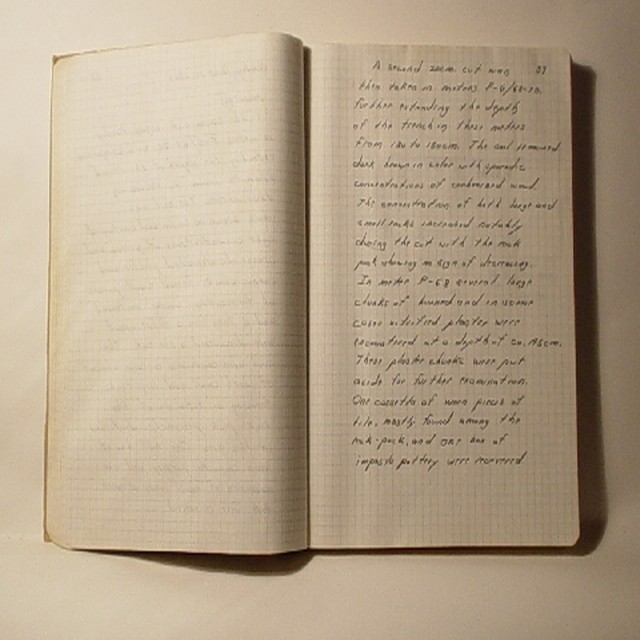 37
A second 20cm. cut was
then taken in meters P-Q/68-70.
further extending the depth
of the trench in these meters
from 160 to 180cm. The soil remained
dark brown in color with sporadic
concentrations of carbonized wood.
The concentration of both large and
small rocks increased notably
during the cut with the rock
pack showing no sign of decreasing.
In meter P-68 several large
chunks of burned and in some
cases vitrified plaster were
encountered at a depth of ca.
These plaster chunks were put
aside for further examination.
One cassetta of worn pieces of
tile, mostly found among the
rock-pack, and one box of
impasto pottery were recovered